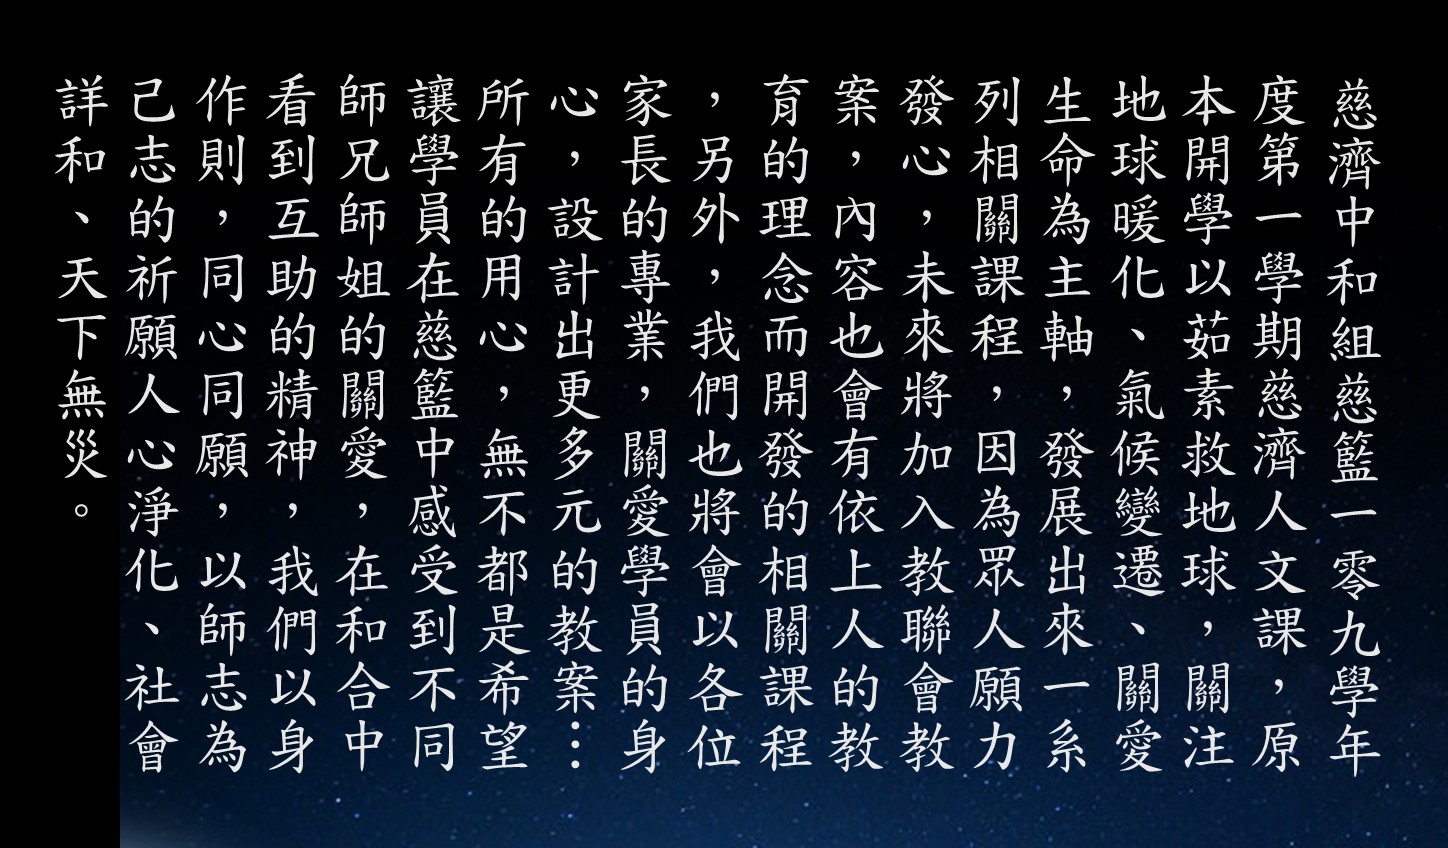 慈濟中和組慈籃一零九學年
度第一學期慈濟人文課，原
本開學以茹素救地球，關注
地球暖化、氣候變遷、關愛
生命為主軸，發展出來一系
列相關課程，因為眾人願力
發心，未來將加入教聯會教
案，內容也會有依上人的教
育的理念而開發的相關課程
，另外，我們也將會以各位
家長的專業，關愛學員的身
心，設計出更多元的教案…
所有的用心，無不都是希望
讓學員在慈籃中感受到不同
師兄師姐的關愛，在和合中
看到互助的精神，我們以身
作則，同心同願，以師志為
己志的祈願人心淨化、社會
詳和、天下無災。